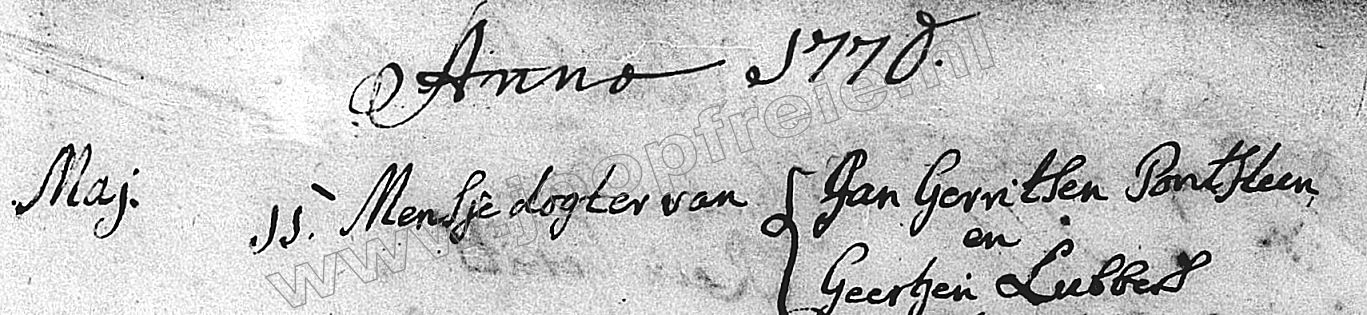 Anno 1778.
Maj. 15. Mensje dogter van { Jan Gerritsen Pontsteen
en
Geertjen Lubbers
www.joopfreie.nl